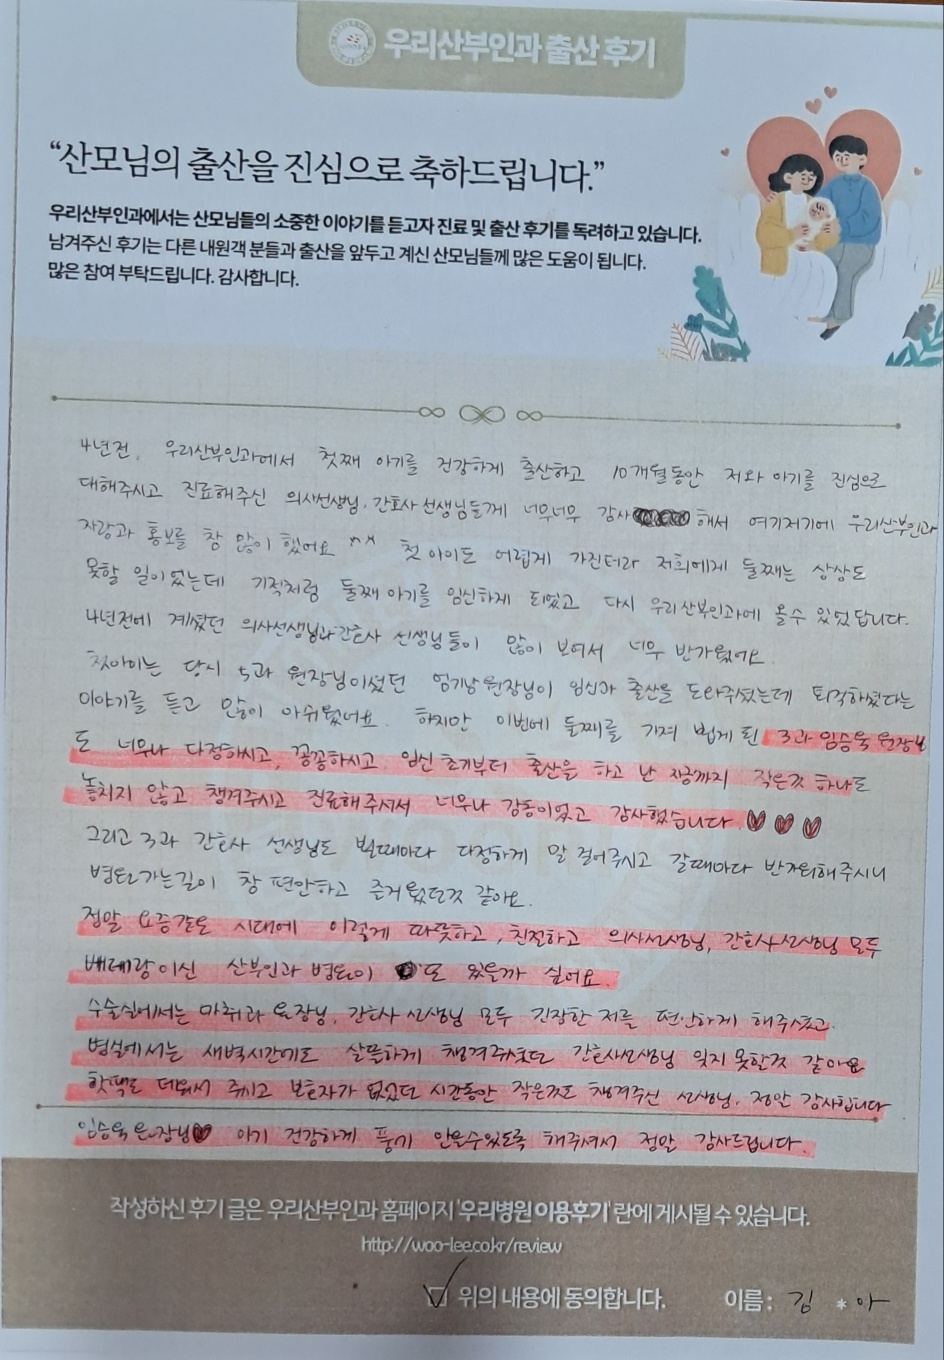 우리산부인과 출산 후기
“산모님의 출산을 진심으로 축하드립니다.”
우리산부인과에서는 산모님들의 소중한 이야기를 듣고자 진료 및 출산 후기를 독려하고 있습니다.
남겨주신 후기는 다른 내원객 분들과 출산을 앞두고 계신 산모님들께 많은 도움이 됩니다.
많은 참여 부탁드립니다. 감사합니다.
4년전, 우리산부인과에서 첫째 아기를 건강하게 출산하고 10개월동안 저와 아기를 진심으로
대해주시고 진료해주신 의사선생님, 간호사 선생님들께 너무너무 감사 해서 여기저기에 우리산부인과
자랑과 홍보를 참 많이 했어요 ^^ 첫 아이도 어렵게 가진터라 저희에게 둘째는 상상도
못할 일이었는데 기적처럼 둘째 아기를 임신하게 되었고 다시 우리산부인과에 올수 있었답니다.
4년전에 계셨던 의사선생님과 간호사 선생님들이 많이 보여서 너무 반가웠어요.
첫아이는 당시 5과 원장님이셨던 엄기남 원장님이 임신과 출산을 도와주셨는데 퇴직하셨다는
이야기를 듣고 많이 아쉬웠어요. 하지만 이번에 둘째를 가져 뵙게 된 3과 임승욱 원장님
도 너무나 다정하시고, 꼼꼼하시고, 임신 초기부터 출산을 하고 난 지금까지 작은것 하나도
놓치지 않고 챙겨주시고 진료해주셔서 너무나 감동이었고 감사했습니다 ♥ ♥ ♥
그리고 3과 간호사 선생님도 뵐때마다 다정하게 말 걸어주시고 갈때마다 반가워해주시니
병원가는길이 참 편안하고 즐거웠던것 같아요.
정말 요즘같은 시대에 이렇게 따뜻하고, 친절하고 의사선생님, 간호사선생님 모두
베테랑이신 산부인과 병원이 또 있을까 싶어요.
수술실에서는 마취과 원장님, 간호사 선생님 모두 긴장한 저를 편안하게 해주셨고
병실에서는 새벽시간에도 살뜰하게 챙겨주셨던 간호사선생님 잊지 못할것 같아요
핫팩도 데워서 주시고 보호자가 없었던 시간동안 작은것도 챙겨주신 선생님, 정말 감사합니다
임승욱 원장님♥ 아기 건강하게 품에 안을수있도록 해주셔서 정말 감사드립니다.
작성하신 후기 글은 우리산부인과 홈페이지 '우리병원 이용후기' 란에 게시될 수 있습니다.
http://woo-lee.co.kr/review
위의 내용에 동의합니다. 이름 : 김 * 아